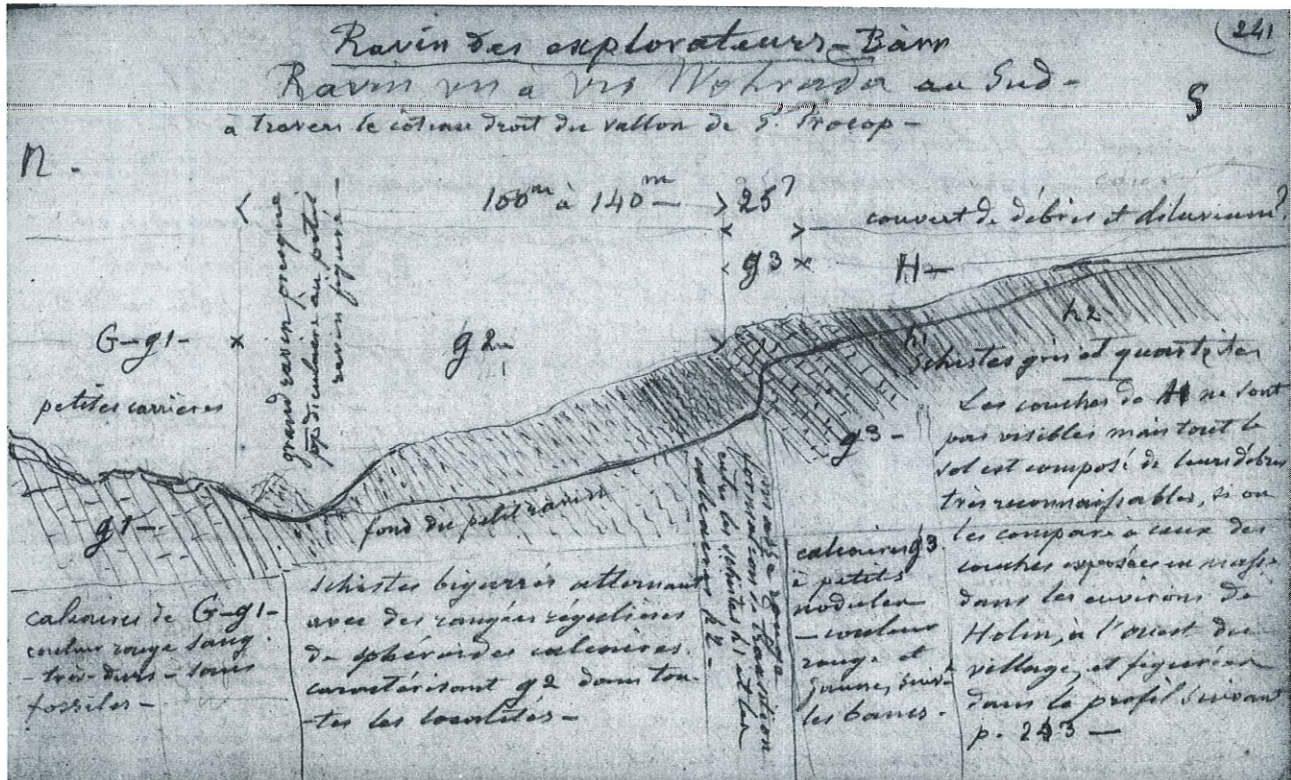 241
Ravin des explorateurs - Bàrr
Ravin vis à vis Wohrada au Sud -
à travers le côteau droit du vallon de St. Procop -
N. -
S
100m à 140m -
25?
couvert de débris et diluvium?
g3
H -
G - g1 -
g2 -
petites carrières
grand ravin presque
perpendiculaire au petit
ravin figuré -
h1
h2 -
schistes gris et quartzites
g3 -
g1 -
fond du petit ravin
Les couches de H ne sont
pas visibles mais tout le
sol est composé de leurs débris
très reconnaissables, si on
les compare à ceux des
couches exposées en masse
dans les environs de
Holin, à l'ouest du
village, et figurées
dans le profil suivant
p. 243 -
calcaires de G - g1 -
couleur rouge sang
- très durs - sans
fossiles -
schistes bigarrés alternant
avec des rangées régulières
de sphéroides calcaires
caractérisant g2 dans tou-
-tes les localités -
rouge
formation de transition
entre les schistes et les
calcaires
calcaires g3
à petits
nodules
- couleur
rouge et
jaune, suiv-
les bancs -